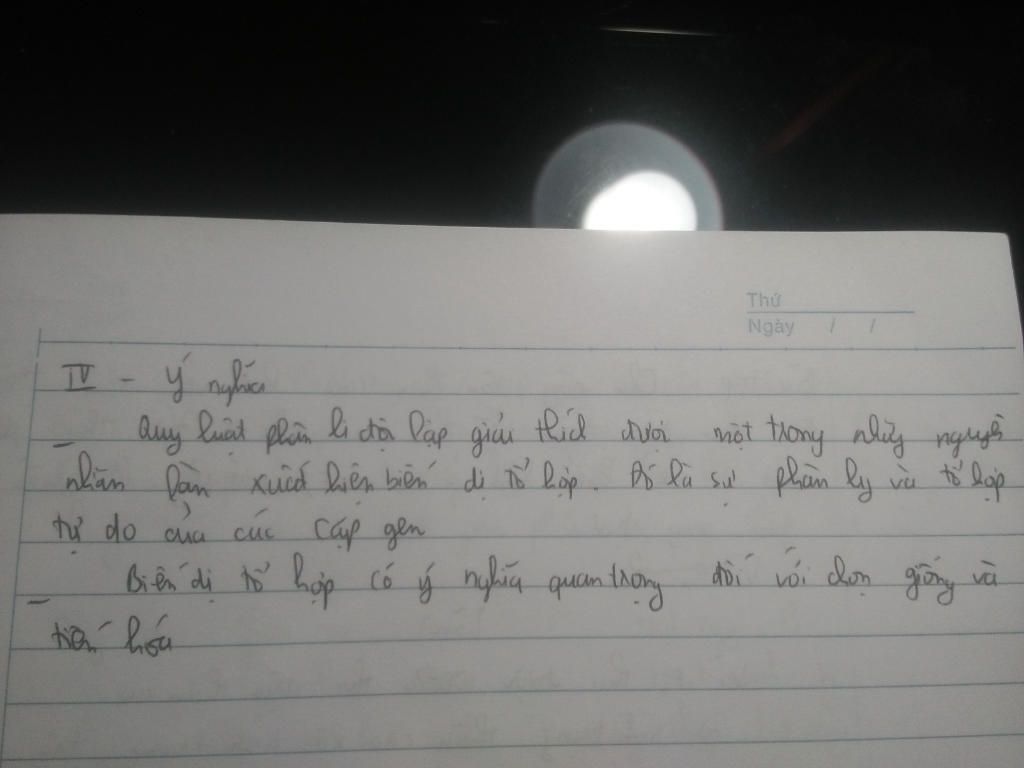 Thứ
Ngày / /
IV - Ý nghĩa
- Quy luật phân li độc lập giải thích được một trong những nguyên
nhân làm xuất hiện biến dị tổ hợp. Đó là sự phân ly và tổ hợp
tự do của các cặp gen
- Biến dị tổ hợp có ý nghĩa quan trọng đối với chọn giống và
tiến hóa